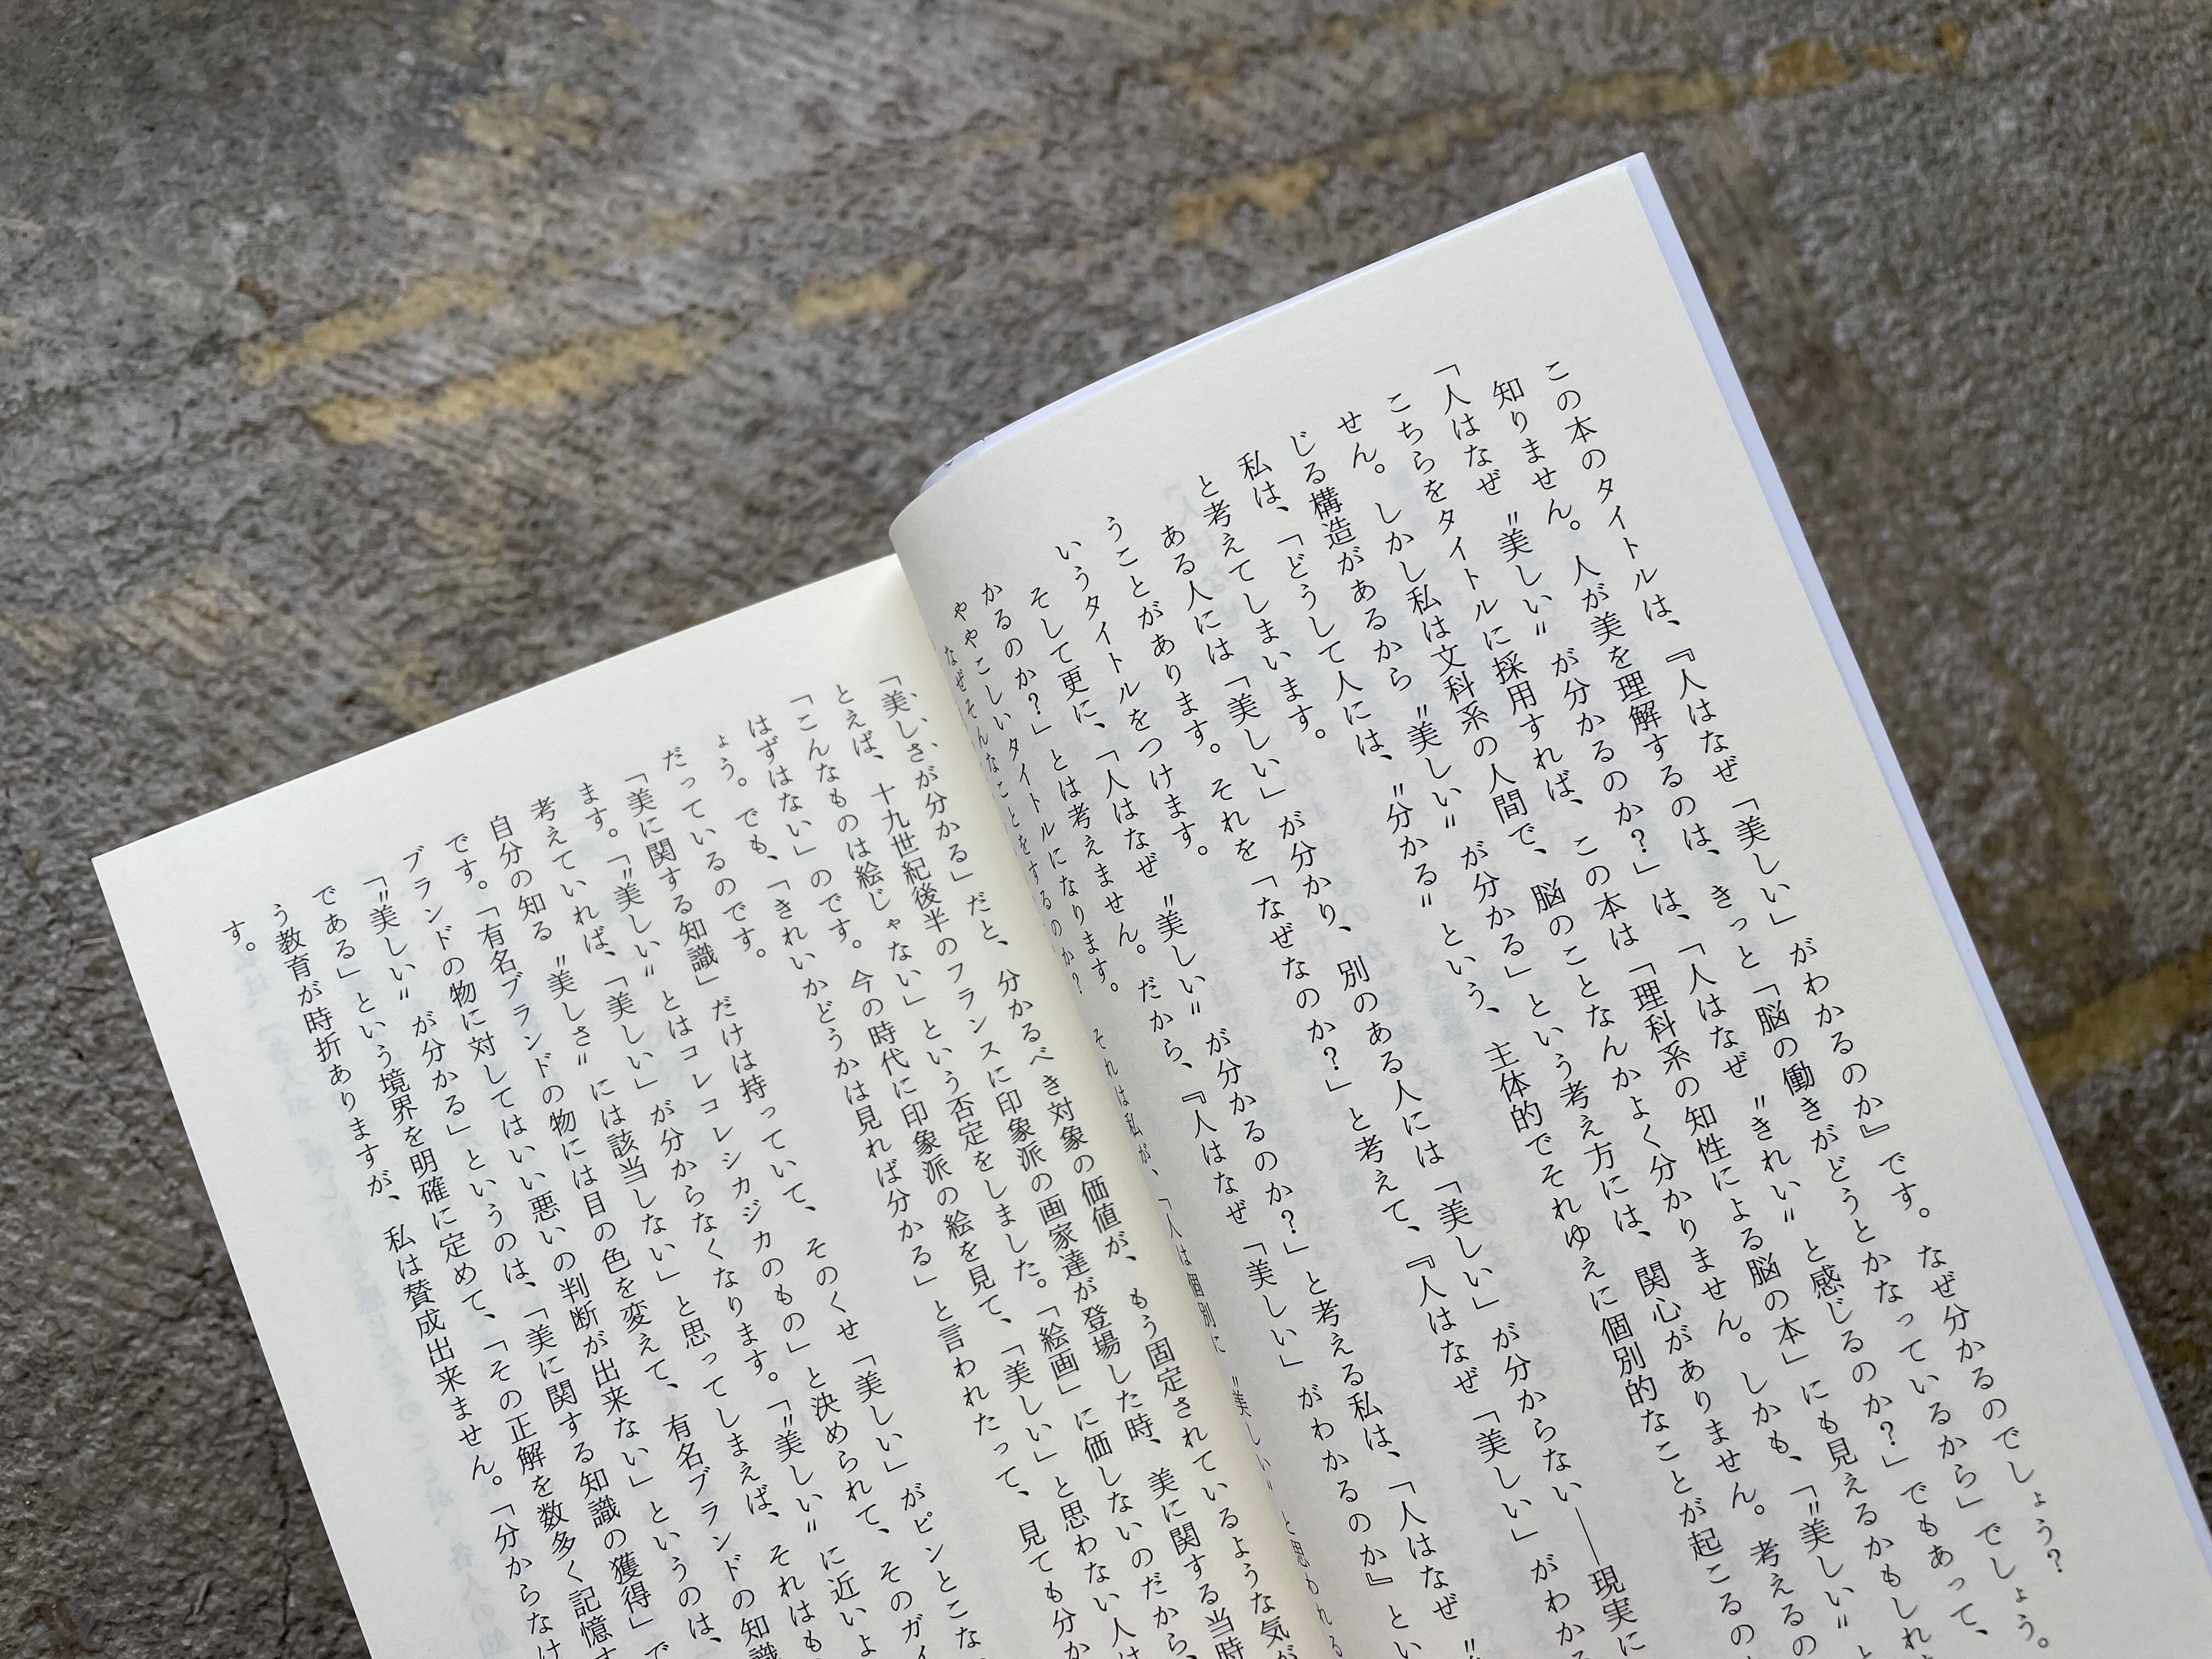 この本のタイトルは、『人はなぜ「美しい」がわかるのか』です。なぜ分かるのでしょう？
知りません。人が美を理解するのは、きっと「脳の働きがどうとかなっているから」でしょう。
「人はなぜ〝美しい〟が分かるのか？」は、「人はなぜ〝きれい〟と感じるのか？」でもあって、
こちらをタイトルに採用すれば、この本は「理科系の知性による脳の本」にも見えるかもしれ
せん。しかし私は文科系の人間で、脳のことなんかよく分かりません。しかも、「〝美しい〟と
じる構造があるから〝美しい〟が分かる」という考え方には、関心がありません。考えるの
私は、「どうして人には、〝分かる〟という、主体的でそれゆえに個別的なことが起こるの
と考えてしまいます。
ある人には「美しい」が分かり、別のある人には「美しい」が分からない――現実に
うことがあります。それを「なぜなのか？」と考えて、『人はなぜ「美しい」がわかる
いうタイトルをつけます。
そして更に、「人はなぜ〝美しい〟が分かるのか？」と考える私は、「人はなぜ〝
かるのか？」とは考えません。だから、『人はなぜ「美しい」がわかるのか』とい
ややこしいタイトルになります。
なぜそんなことをするのか？ それは私が、「人は個別に〝美しい〟と思われる
「美しさが分かる」だと、分かるべき対象の価値が、もう固定されているような気が
とえば、十九世紀後半のフランスに印象派の画家達が登場した時、美に関する当時
「こんなものは絵じゃない」という否定をしました。「絵画」に価しないのだから、
はずはない」のです。今の時代に印象派の絵を見て、「美しい」と思わない人は
ょう。でも、「きれいかどうかは見れば分かる」と言われたって、見ても分か
だっているのです。
「美に関する知識」だけは持っていて、そのくせ「美しい」がピンとこな
ます。「〝美しい〟とはコレコレシカジカのもの」と決められて、そのガイ
考えていれば、「美しい」が分からなくなります。「〝美しい〟に近いよ
自分の知る〝美しさ〟には該当しない」と思ってしまえば、それはも
です。「有名ブランドの物には目の色を変えて、有名ブランドの知識
ブランドの物に対してはいい悪いの判断が出来ない」というのは、
「〝美しい〟が分かる」というのは、「美に関する知識の獲得」で
である」という境界を明確に定めて、「その正解を数多く記憶す
う教育が時折ありますが、私は賛成出来ません。「分からなけ
す。